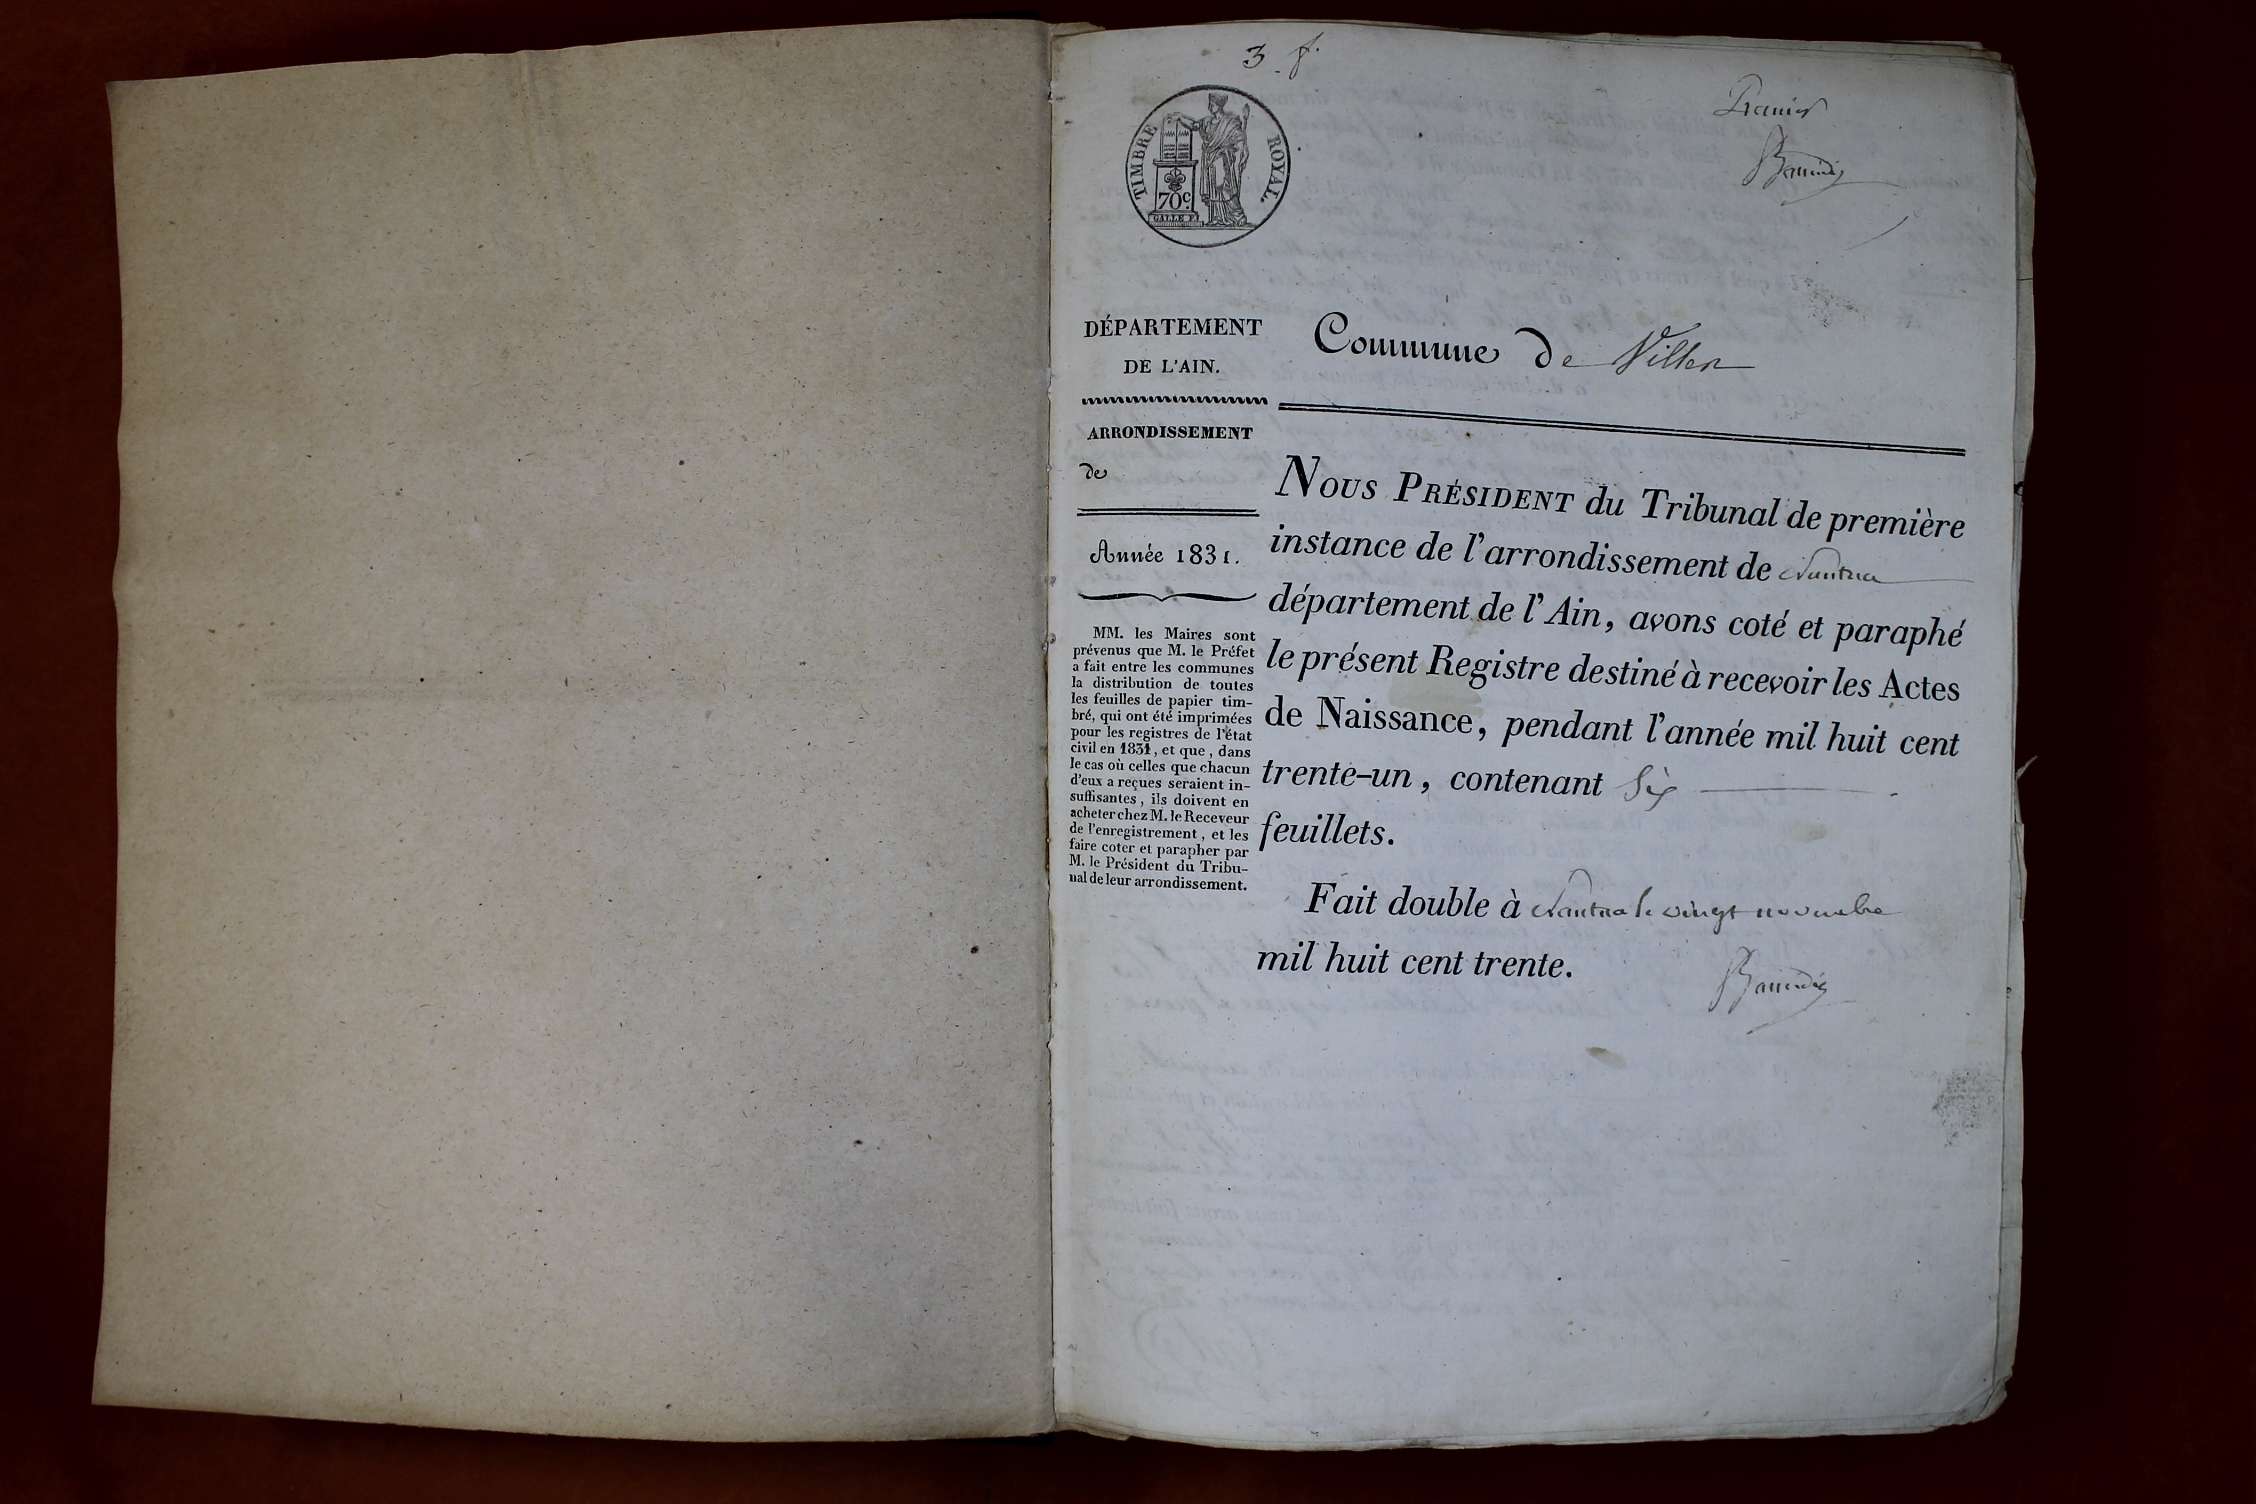 3 f.
TIMBRE ROYAL.
70c.
Premier
DÉPARTEMENT
DE L'AIN.
ARRONDISSEMENT
de
Année 1831.
MM. les Maires sont
prévenus que M. le Préfet
a fait entre les communes
la distribution de toutes
les feuilles de papier tim-
bré, qui ont été imprimées
pour les registres de l'état
civil en 1831, et que, dans
le cas où celles que chacun
d'eux a reçues seraient in-
suffisantes, ils doivent en
acheter chez M. le Receveur
de l'enregistrement, et les
faire coter et parapher par
M. le Président du Tribu-
nal de leur arrondissement.
Commune de Villes
NOUS PRÉSIDENT du Tribunal de première
instance de l'arrondissement de Nantua
département de l'Ain, avons coté et paraphé
le présent Registre destiné à recevoir les Actes
de Naissance, pendant l'année mil huit cent
trente-un, contenant Six
feuillets.
Fait double à Nantua le vingt novembre
mil huit cent trente.